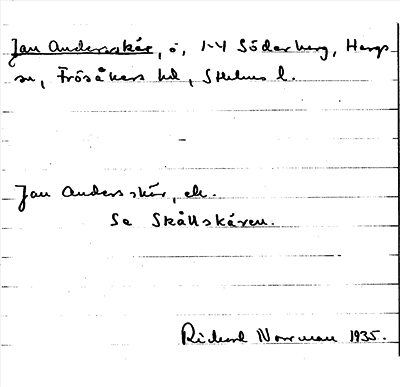 Jan Andersskär, ö, 1-4 Söderberg, Hargs
sn, Frösåkers hd, Sthlms l.
Jan Andersskär, ek.
Se Skållskären.
Rickard Norrman 1935.